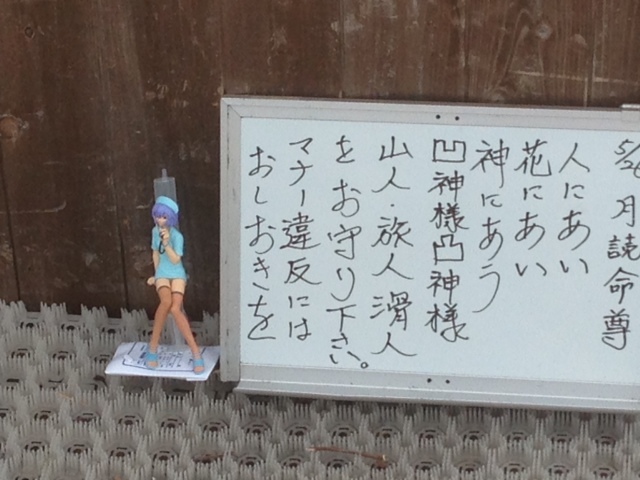 5/26 月読命尊
人にあい
花にあい
神にあう
凹神様凸神様
山人・旅人滑人
をお守り下さい。
マナー違反には
おしおきを